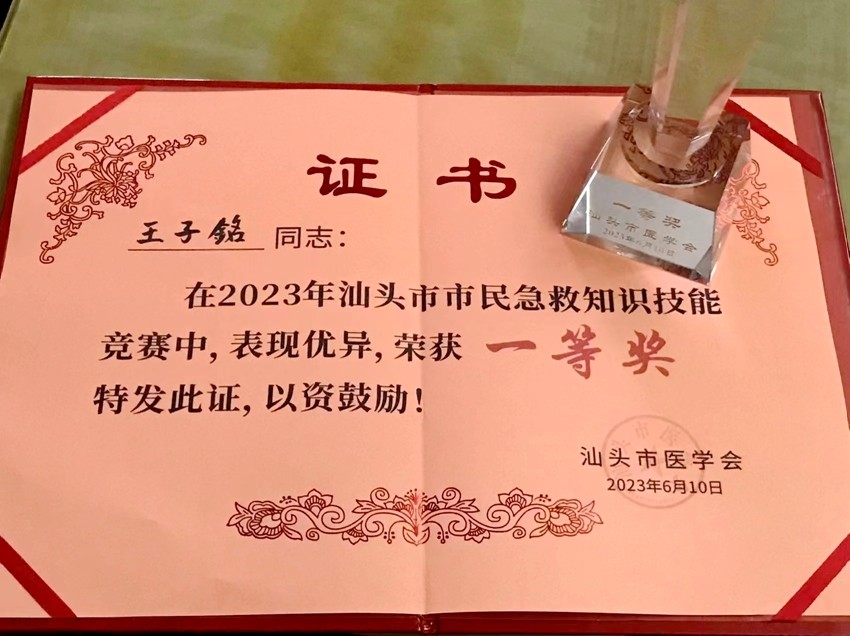 证书
王子銘 同志：
在2023年汕头市市民急救知识技能
竞赛中，表现优异，荣获 一等奖
特发此证，以资鼓励！
汕头市医学会
2023年6月10日
一等奖
汕头市医学会
2023年6月10日